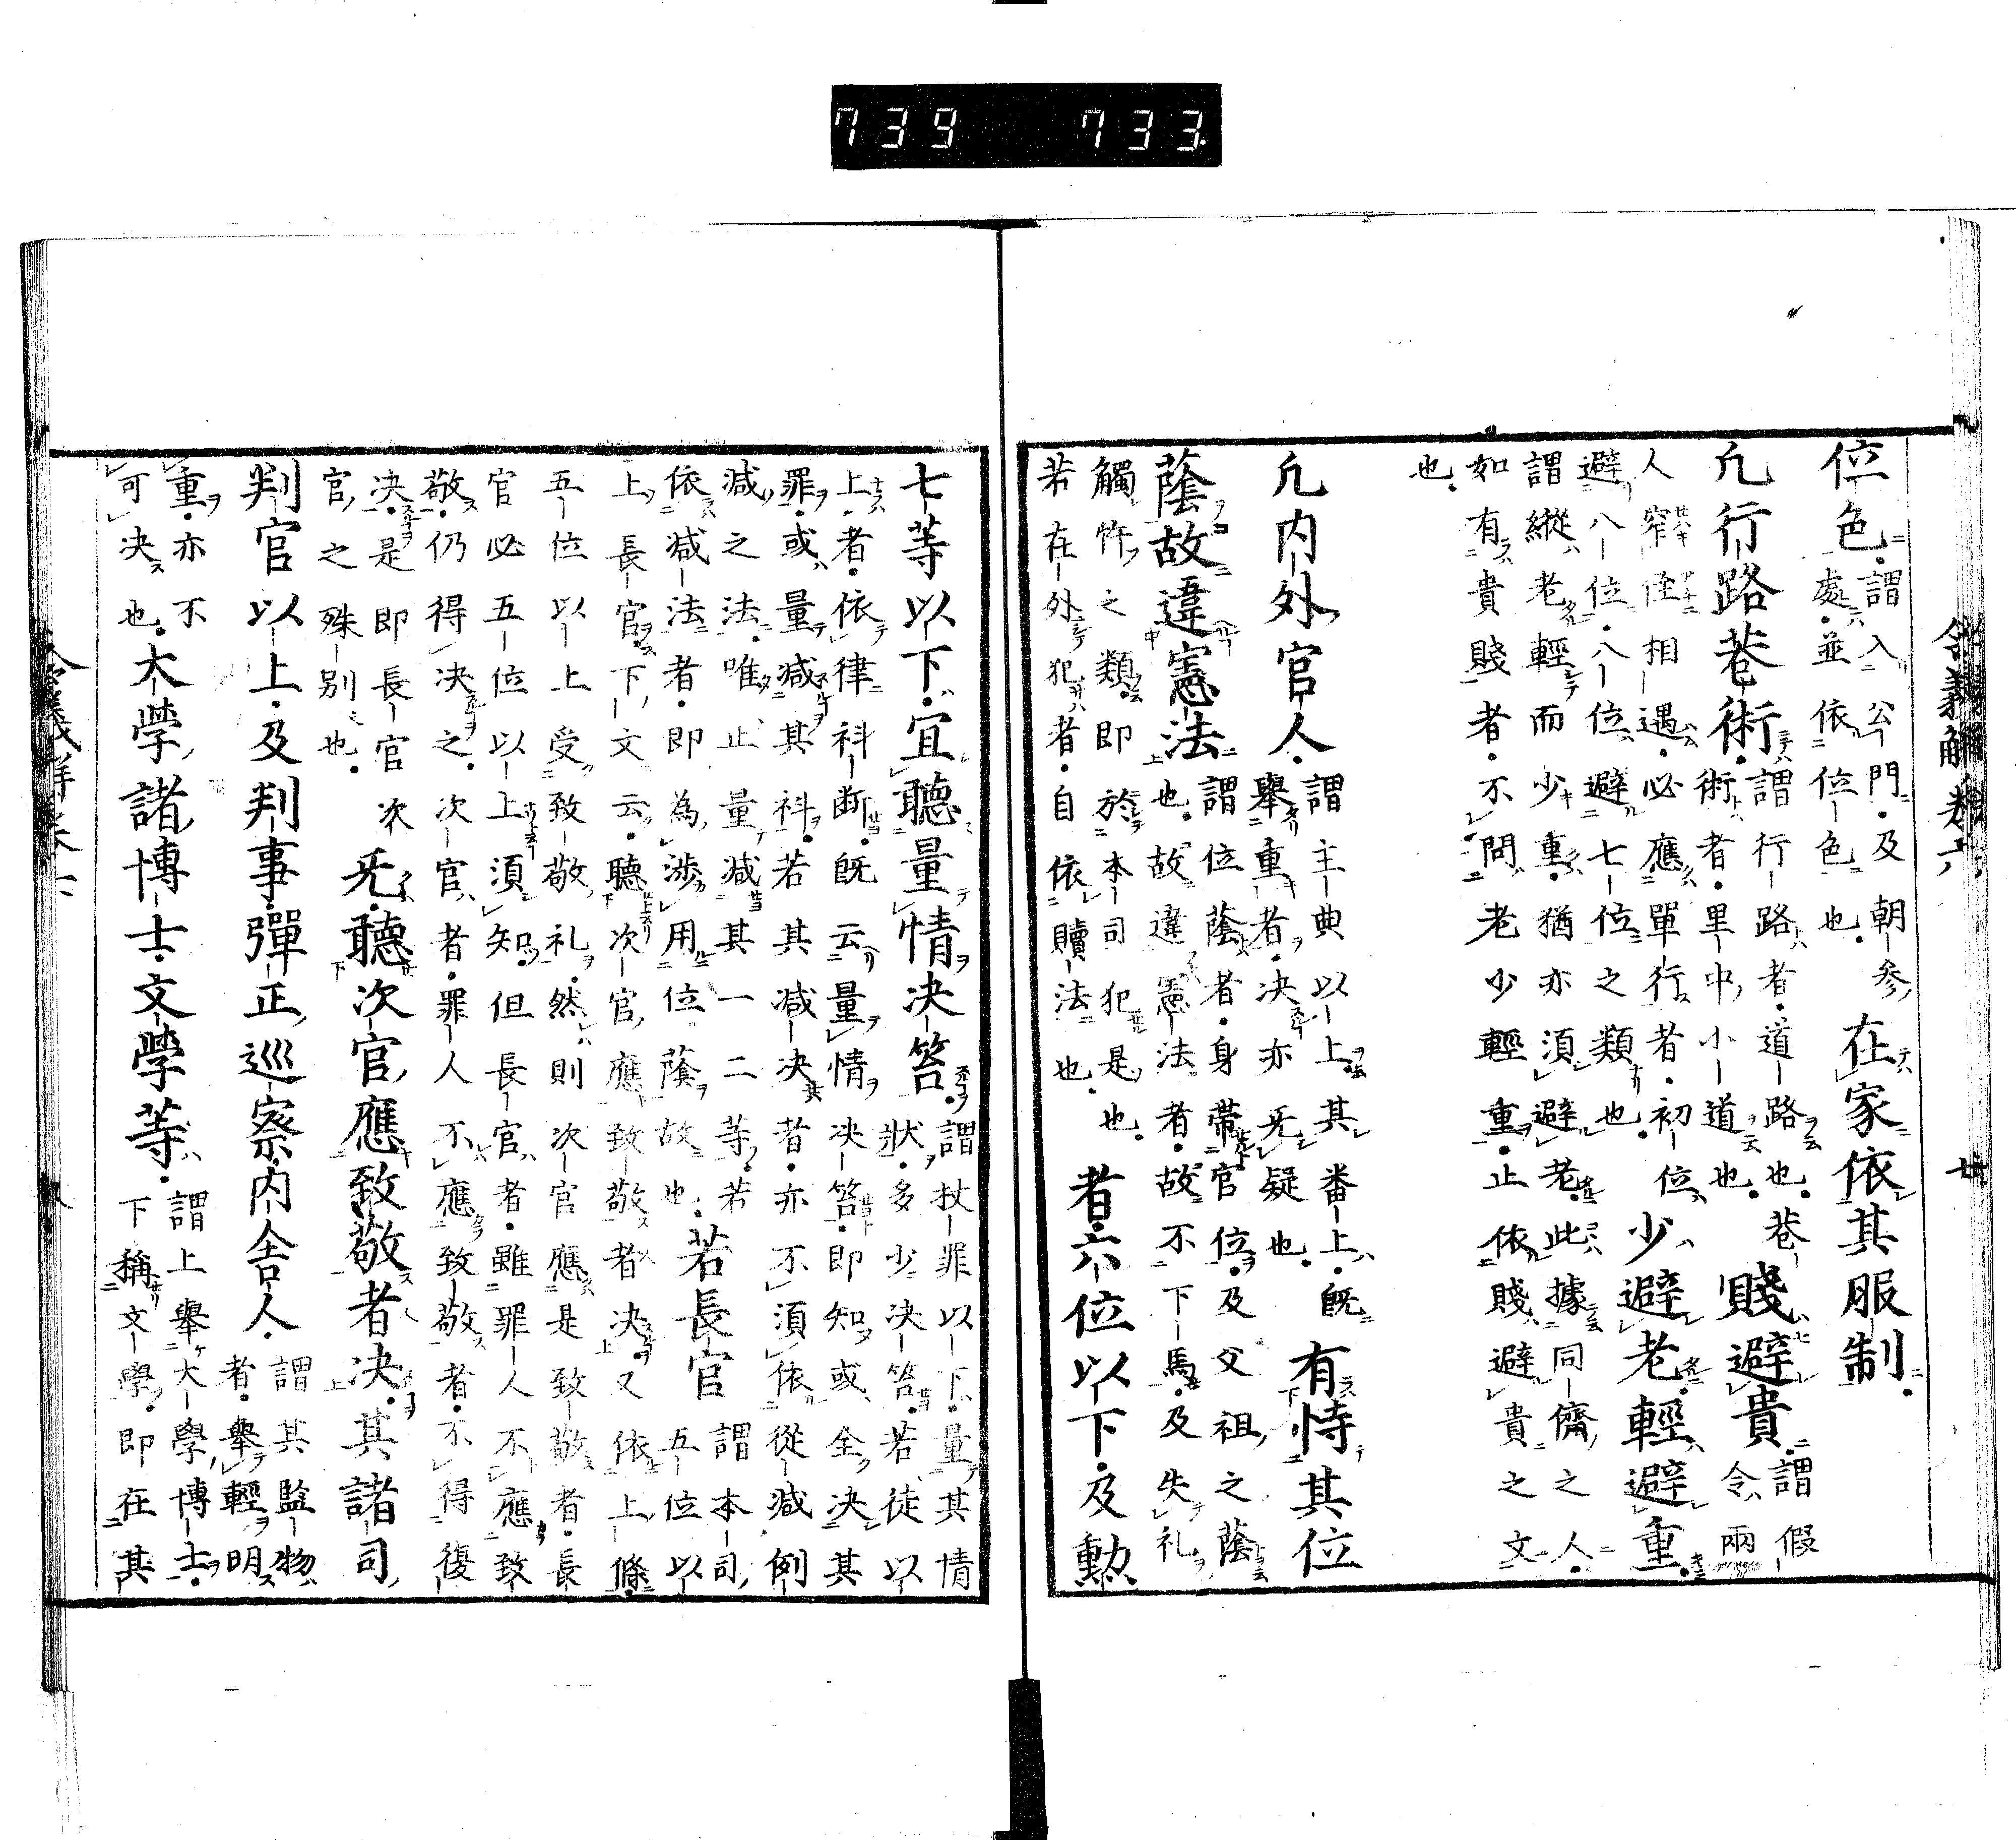 令義解卷六 七
位色。謂入公門。及朝參
處。並依位色也。在家依其服制。
凢行路巷術。謂行路者。道路也。巷
術者。里中小道也。賤避貴。謂假令兩
人窄徑相遇。必應單行者。初位
避八位。八位避七位之類也。少避老。輕避重。
謂縱老輕而少重。猶亦須避老。此據同儕之人。
如有貴賤者。不問老少輕重。止依賤避貴之文
也。
凢内外官人。謂主典以上。其番上。既
舉重者。决亦旡疑也。有恃其位
蔭故違憲法謂位蔭者。身帶官位。及父祖之蔭
也。故違憲法者。故不下馬。及失礼
觸忤之類。即於本司犯是也。
若在外犯者。自依贖法也。者。六位以下。及勳
七等以下。宜聽量情决笞。謂杖罪以下。量其情
狀。多少决笞。若徒以
上者。依律科断。既云量情决笞。即知或全决其
罪。或量减其科。若其减决者。亦不須依從减例
减之法。唯止量减其一二等。若
依减法者。即為涉用位蔭故也。若長官謂本司
五位以
上長官。下文云。聽次官應致敬者决。又依上條。
五位以上受致敬礼。然則次官應是致敬者。長
官必五位以上須知。但長官者。雖罪人不應致
敬。仍得决之。次官者。罪人不應致敬者。不得復
决。是即長官次
官之殊别也。旡。聽次官應致敬者决。其諸司
判官以上。及判事彈正巡察内舎人。謂其監物
者。舉輕明
重。亦不
可决也。大學諸博士。文學等。謂上舉大學博士。
下稱文學。即在其